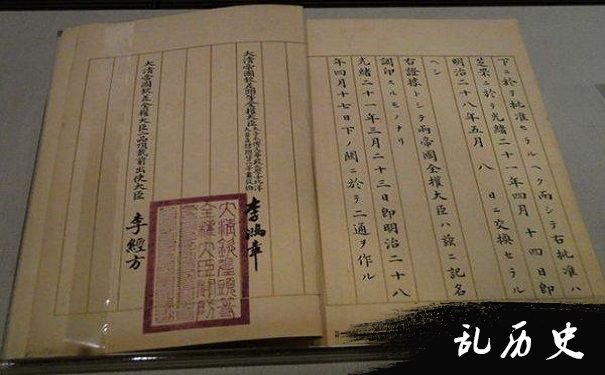 下ニ於テ批准セラルヘク而シテ右批准ハ
芝罘ニ於テ光緒二十一年四月十四日即
明治二十八年五月 八 日ニ交換セラル
ヘシ
右證據トシテ兩帝國全權大臣ハ茲ニ記名
調印スルモノナリ
光緒二十一年三月二十三日即明治二十八
年四月十七日下ノ關ニ於テ二通ヲ作ル
大清帝國欽差頭等全權大臣 李鴻章
大清帝國欽差全權大臣二品頂戴前出使大臣 李經方
大清欽差頭等
全權大臣關防
乱历史